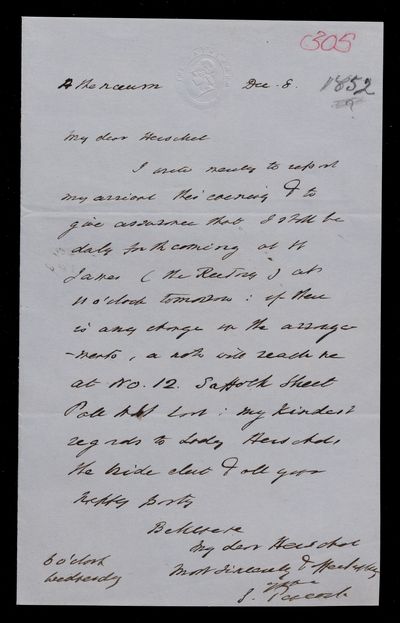 305
Athenaeum Dec. 8. 1852
My dear Herschel
I write merely to report
my arrival this evening & to
give assurance that I shall be
duly forthcoming at St
James (the Rectory) at
11 o'clock tomorrow: if there
is any change in the arrange
-ments, a note will reach me
at No. 12. Suffolk Street
Pall Mall East: my kindest
regards to Lady Herschel,
the bride elect & all your
happy party
Believe me
My dear Herschel
6 o'clock Most sincerely & affectionately
Wednesday yours
G. Peacock